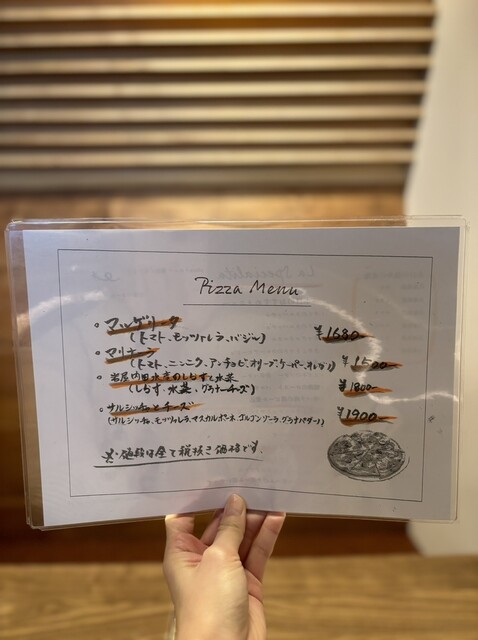 Pizza Menu
・マルゲリータ ¥1680
(トマト、モッツァレラ、バジル)
・マリナーラ ¥1500
(トマト、ニンニク、アンチョビ、オリーブ、ケーパー、オレガノ)
・岩屋内田水産のしらすと水菜 ¥1800
(しらす、水菜、グラナチーズ)
・サルシッチャとチーズ ¥1900
(サルシッチャ、モッツァレラ、マスカルポーネ、ゴルゴンゾーラ、グラナパダーノ)
※値段は全て税抜き価格です。